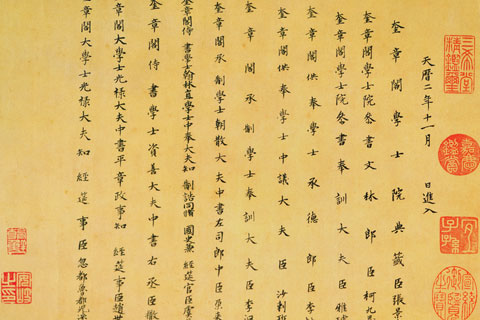 三希堂精鑒璽
嘉慶鑑賞
宜子孫
天曆二年十一月 日進入
奎章閣學士院典籤臣張景
奎章閣學士院參書文林郎臣柯九
奎章閣學士院參書奉訓大夫臣雅
奎章閣供奉學士承德郎臣李
奎章閣供奉學士中議大夫臣沙剌班
奎章閣承制學士奉訓大夫臣李
奎章閣承制學士朝散大夫中書左司郎中臣朶來
奎章閣侍書學士翰林直學士中奉大夫知制誥同脩國史兼經筵官臣虞
奎章閣侍書學士資善大夫中書右丞臣撒
奎章閣大學士光祿大夫中書平章政事知經筵事臣趙世
奎章閣大學士光祿大夫知經筵事臣忽都魯都兒迷